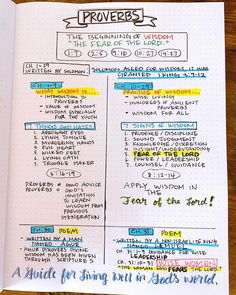 PROVERBS
THE BEGINNING OF WISDOM
"THE FEAR OF THE LORD."
1:7 2:5 9:10 10:27 14:27
CH 1-29
WRITTEN BY SOLOMON
SOLOMON ASKED FOR WISDOM, IT WAS
GRANTED 1 KINGS 3:9-12
CH. 1-9
WHAT WISDOM IS...
INTRODUCTION TO
PROVERBS
VALUE OF WISDOM
WISDOM ESPECIALLY
FOR THE YOUTH
PRACTICE OF WISDOM...
WISE LIVING
HUNDREDS OF ANCIENT
PROVERBS
WISDOM FOR ALL
7 THINGS GOD HATES
1. ARROGANT EYES
2. LYING TONGUE
3. MURDERING HANDS
4. EVIL HEART
5. WILD FEET
6. LYING GUTS
7. TROUBLE MAKER
6:16-19
7 SIGNS OF WISDOM
1. PRUDENCE / DISCIPLINE
2. SOUND JUDGMENT
3. KNOWLEDGE / DISCRETION
4. INSIGHT / UNDERSTANDING
5. FEAR OF THE LORD
6. POWER / LEADERSHIP
7. COUNSEL / GUIDANCE
8:12-14
PROVERBS = GOOD ADVICE
PROVERBS = GOD'S
INVITATION
TO LEARN
WISDOM FROM
PREVIOUS
GENERATIONS
APPLY WISDOM IN
THE
Fear of the Lord!
CH. 30 POEM
WRITTEN BY A MAN
NAMED AGUR
AGUR DISCOVERS DIVINE
WISDOM HAS BEEN GIVEN
THROUGH SCRIPTURES
CH. 31 POEM
WRITTEN BY A NON-ISRAELITE KING
NAMED LEMUEL
31:1-9 GUIDANCE FOR WISE
LEADERSHIP
THE WOMAN WHO FEARS THE LORD
A Guide for Living Well in God's World.